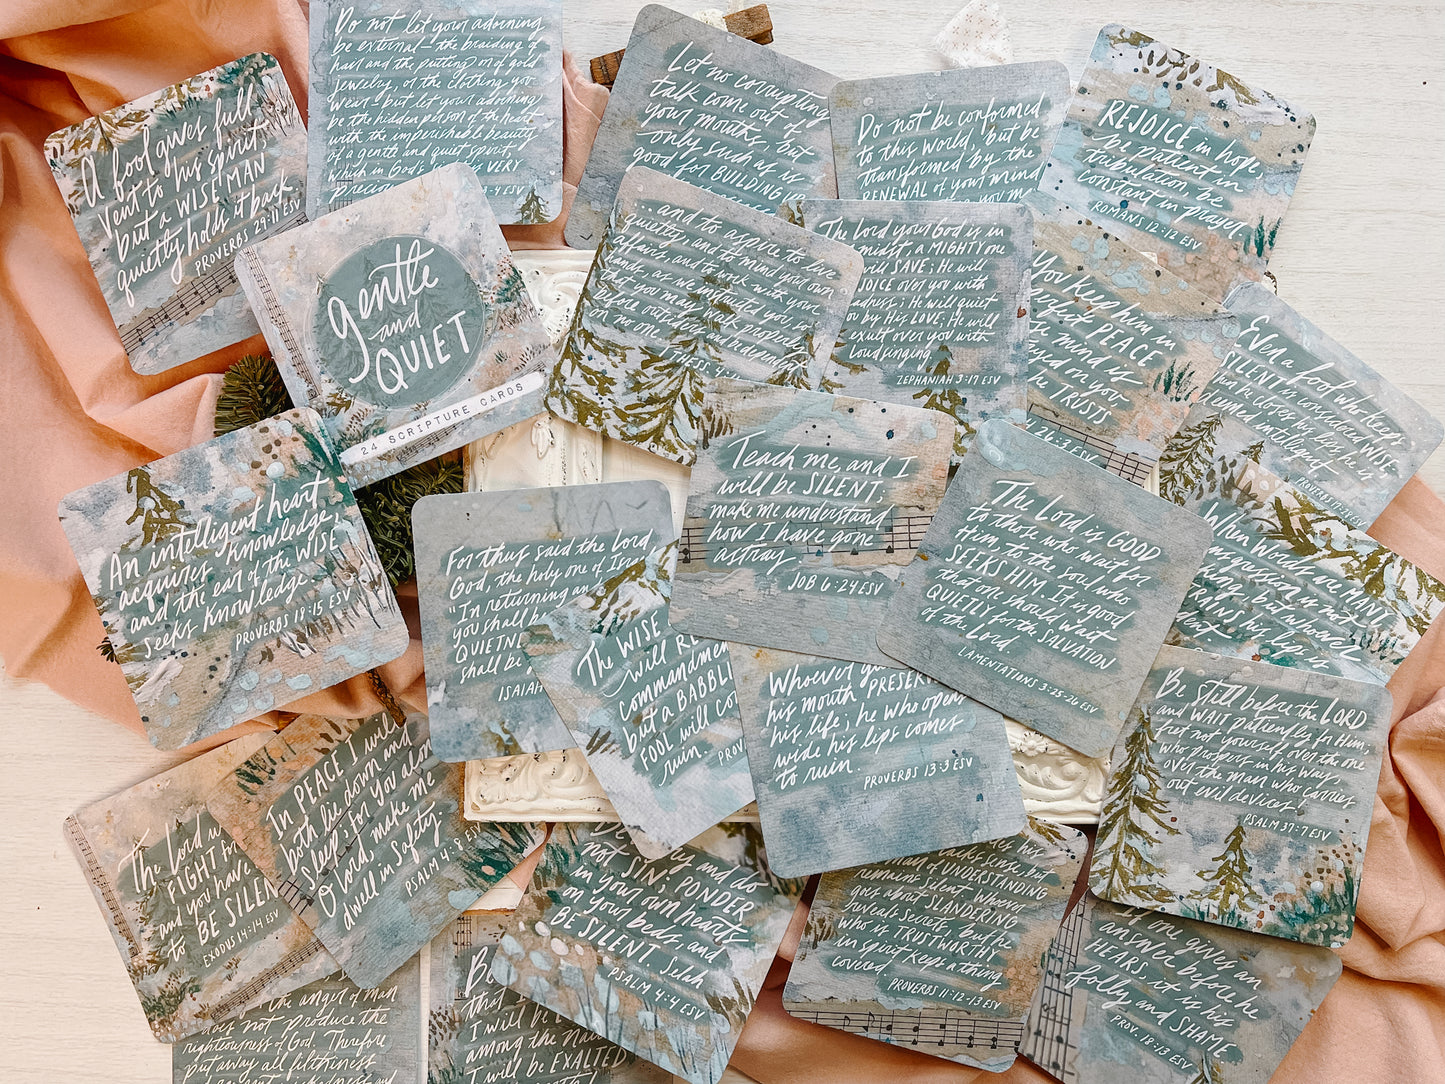 A fool gives full
vent to his spirit,
but a WISE MAN
quietly holds it back
PROVERBS 29:11 ESV
Do not let your adorning
be external - the braiding of
hair and the putting on of gold
jewelry, or the clothing you
wear - but let your adorning
be the hidden person of the heart
with the imperishable beauty
of a gentle and quiet spirit,
which in God's is VERY
precious
3:4 ESV
Let no corrupting
talk come out of
your mouths, but
only such as is
good for BUILDING
Do not be conformed
to this world, but be
transformed by the
RENEWAL of your mind
you may
REJOICE in hope,
be patient in
tribulation, be
constant in prayer.
ROMANS 12:12 ESV
gentle
and
QUIET
24 SCRIPTURE CARDS
...and to aspire to live
quietly, and to mind your own
affairs, and to work with your
hands, as we instructed you, so
that you may walk properly
before outsiders and be dependent
on no one.
1 THESS. 4:
The Lord your God is in
midst, a MIGHTY one
will SAVE; He will
REJOICE over you with
gladness; He will quiet
you by His LOVE; He will
exult over you with
loud singing.
ZEPHANIAH 3:17 ESV
You keep him in
perfect PEACE
mind is
stayed on you,
he TRUSTS
26:3 ESV
Even a fool who keeps
SILENT is considered WISE;
when he closes his lips, he is
deemed intelligent.
PROVERBS 17:28 ESV
An intelligent heart
acquires knowledge,
and the ear of the WISE
seeks knowledge.
PROVERBS 18:15 ESV
For thus said the Lord
God, the holy one of Isr
"In returning an
you shall be
QUIETN
shall be
ISAIAH
Teach me, and I
will be SILENT;
make me understand
how I have gone
astray.
JOB 6:24 ESV
The Lord is GOOD
to those who wait for
Him, to the soul who
SEEKS HIM. It is good
that one should wait
QUIETLY for the SALVATION
of the Lord.
LAMENTATIONS 3:25-26 ESV
When Words are MANY,
transgression is not
lacking, but whoever
RESTRAINS his lips is
The WISE
will RE
commandmen
but a BABBL
FOOL will co
ruin.
PROV
Whoever gu
his mouth PRESERV
his life; he who opens
wide his lips comes
to ruin.
PROVERBS 13:3 ESV
Be still before the LORD
and WAIT patiently for Him;
fret not yourself over the one
who prospers in his way,
over the man who carries
out evil devices!
PSALM 37:7 ESV
The Lord w
FIGHT for
and you have
to BE SILEN
EXODUS 14:14 ESV
In PEACE I will
both lie down and
sleep; for you alone,
O Lord, make me
dwell in safety.
PSALM 4:8 ESV
not SIN; PONDER
in your own hearts
on your beds, and
BE SILENT. Selah
PSALM 4:4 ESV
lacks sense, but
man of UNDERSTANDING
remains silent. Whoever
goes about SLANDERING
reveals secrets, but he
who is TRUSTWORTHY
in spirit keeps a thing
covered.
PROVERBS 11:12-13 ESV
If one gives an
answer before he
HEARS, it is his
folly and SHAME
PROV. 18:13 ESV
the anger of man
does not produce the
righteousness of God. Therefore
put away all filthiness
Be
that I
I will be
among the nat
I will be EXALTED